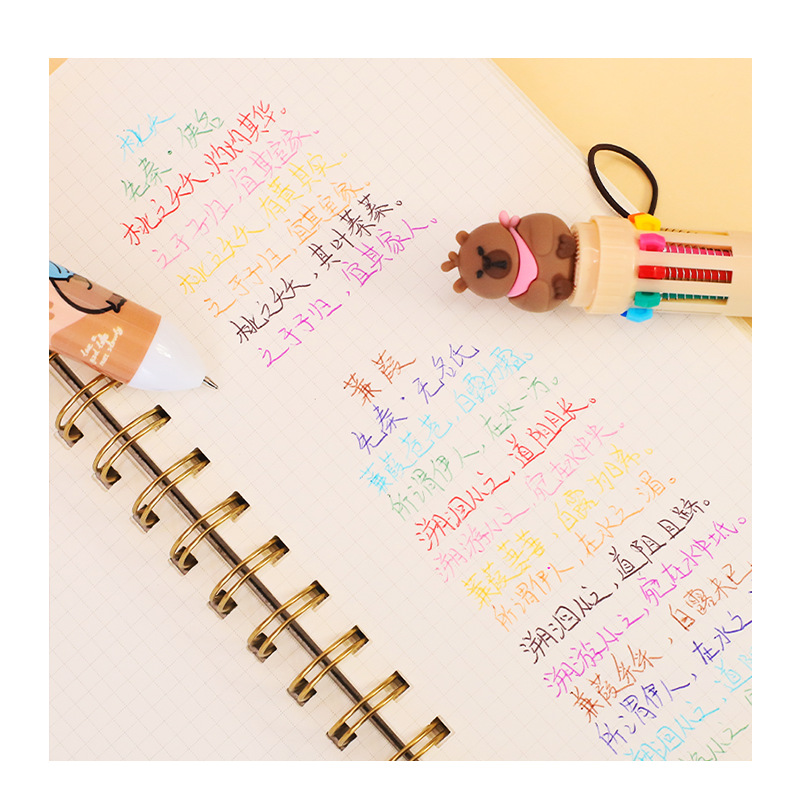 桃夭
先秦·佚名
桃之夭夭,灼灼其华。
之子于归,宜其室家。
桃之夭夭,有蕡其实。
之子于归,宜其室家。
桃之夭夭,其叶蓁蓁。
之子于归,宜其家人。
蒹葭
先秦·无名氏
蒹葭苍苍,白露为霜。
所谓伊人,在水一方。
溯洄从之,道阻且长。
溯游从之,宛在水中央。
蒹葭萋萋,白露为晞。
所谓伊人,在水之湄。
溯洄从之,道阻且跻。
溯游从之,宛在水中坻。
蒹葭采采,白露未已
所谓伊人,在水之
溯洄从之,道阻
溯游从之,宛